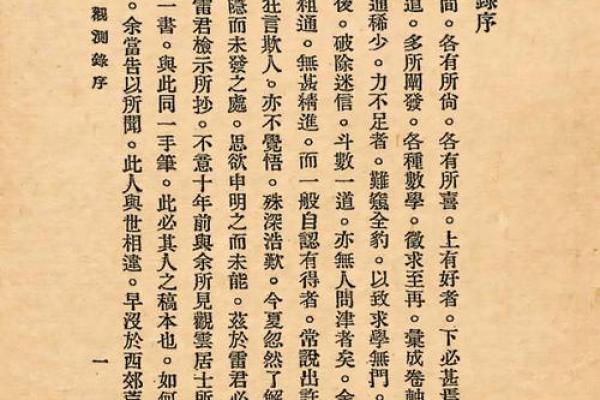 錄序
間。各有所尙。各有所喜。上有好者。下必甚焉
道。多所闡發。各種數學。徵求至再。彙成卷軸
通稀少。力不足者。難窺全豹。以致求學無門。
後。破除迷信。斗數一道。亦無人問津者矣。余
粗通。無甚精進。而一般自認有得者。常說出許
狂言欺人。亦不覺悟。殊深浩歎。今夏忽然了解
隱而未發之處。思欲申明之而未能。茲於雷君必
雷君檢示所抄。不意十年前與余所見觀雲居士所
一書。與此同一手筆。此必其人之稿本也。如何
。余當告以所聞。此人與世相違。早沒於西郊
觀測錄序
一